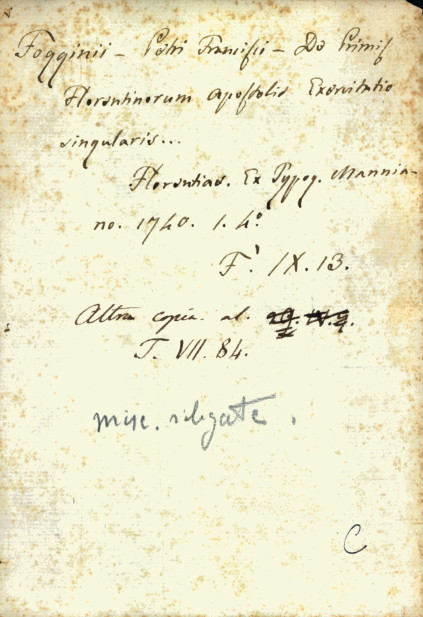 Fogginii - Petri Francisci - De Primis
Florentinorum Apostolis Exercitatio
singularis...
Florentiae. Ex Typog. Mannia-
no. 1740. 1. 4.º
F. IX. 13.
Altra copia. al.
T. VII. 84.
misc. slegate.
C